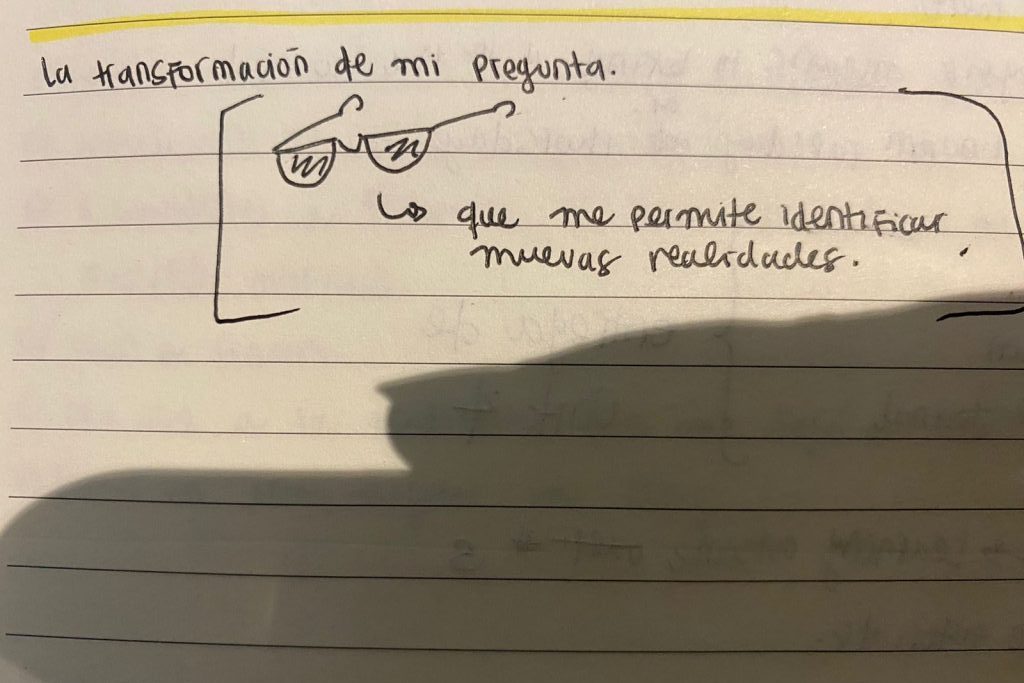 La transformación de mi pregunta.
↳ que me permite identificar
nuevas realidades.